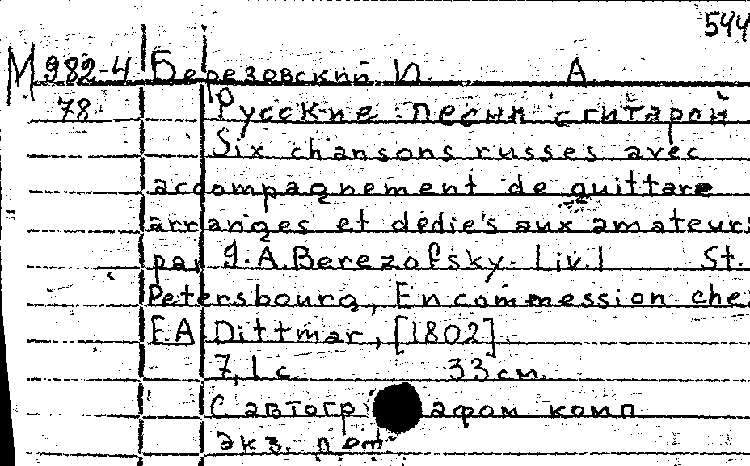 544
М 982-4 Березовский И. А.
78. Русские песни с гитарой
Six chansons russes avec
accompagnement de guittare
arranges et dédie's aux amateurs
par J.A. Berezofsky. Liv. I St.
Petersbourg, En commession che
F.A Dittmar, [1802]
7, 1 с. 33 см.
С автогр афом комп.
экз.